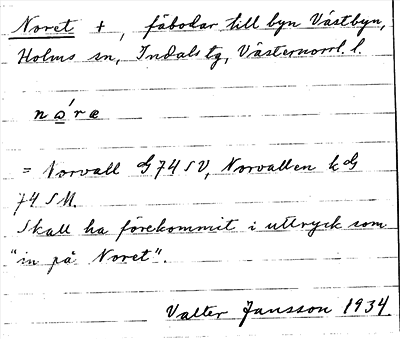 Noret +, fäbodar till byn Västbyn,
Holms sn, Indals tg, Västernorrl. l.
nə́ræ
= Norvall G 74 SV, Norvallen k G
74 SM.
Skall ha förekommit i uttryck som
"in på Noret".
Valter Jansson 1934.